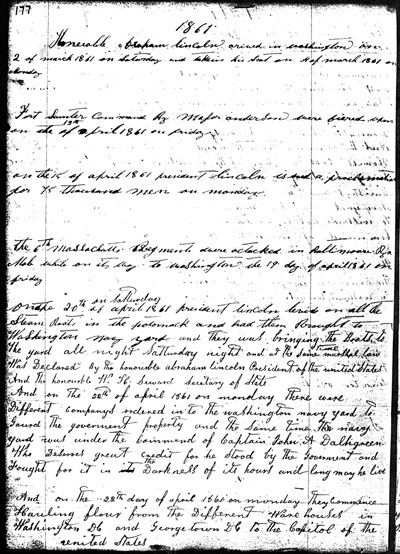 177
1861
Honerable Abraham Lincoln arived in washington on
2 of march 1861 on Saturday and taking his seat on 4 of march 1861 on
monday
Fort Sumter Command By Major anderson were fiered upon
on the 12th of april 1861 on friday
on the 15 of april 1861 president Lincoln isued a proclamation
for 75 thousand men on monday
the 6th Massachutts Regments were attacked in Baltimore By a
Mob while on its way to washington the 19 day of april 1861 on
friday
on the 20th of april 1861 on Satturday president lincoln seied on all the
Steam Boats in the potomack and had them Brought to
Washington navy yard and they was bringing the Boats to
the yard all night Satturday night and at the Same time marshal Law
Was Declared By the honourable abraham Lincoln President of the united States
And the honourable Wm H. Seward Secretary of State
And on the 22th of april 1861 on monday There were
Different companys ordered in to the washington navy yard to
Gaurd the government property and the Same time the navy
yard was under the Commend of Captain John A Dalhgreen
Who Deserves great credit for he Stood by the Goverment and
Fought for it in the Darkness of its hours and long may he live
And on the 22th day of april 1861 on monday They Commence
Hauling flour from the Different Ware houses in
Washington DC and Georgetown DC to the Capitol of the
united States